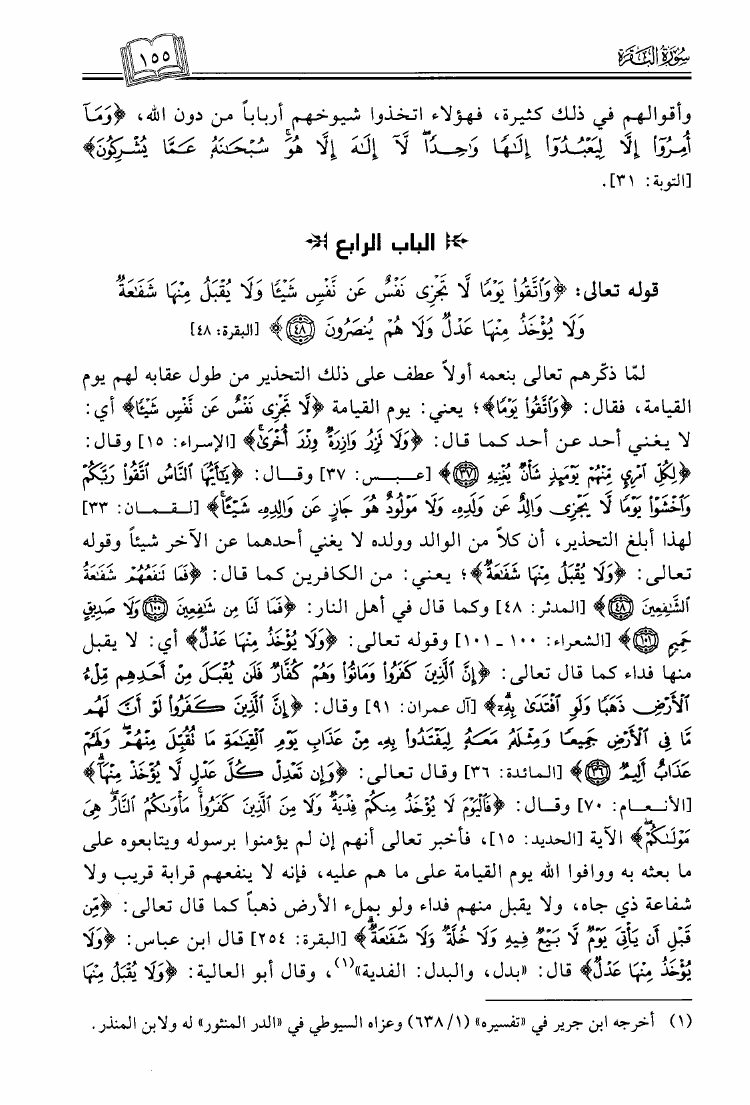 سورة البقرة
١٥٥
وأقوالهم في ذلك كثيرة، فهؤلاء اتخذوا شيوخهم أرباباً من دون الله، ﴿وَمَآ
أُمِرُوٓا۟ إِلَّا لِيَعْبُدُوٓا۟ إِلَٰهًا وَٰحِدًا ۖ لَّآ إِلَٰهَ إِلَّا هُوَ ۚ سُبْحَٰنَهُۥ عَمَّا يُشْرِكُونَ﴾
[التوبة: ٣١].
الباب الرابع
قوله تعالى: ﴿وَٱتَّقُوا۟ يَوْمًا لَّا تَجْزِى نَفْسٌ عَن نَّفْسٍ شَيْـًٔا وَلَا يُقْبَلُ مِنْهَا شَفَٰعَةٌ
وَلَا يُؤْخَذُ مِنْهَا عَدْلٌ وَلَا هُمْ يُنصَرُونَ ٤٨﴾ [البقرة: ٤٨]
لمّا ذكّرهم تعالى بنعمه أولاً عطف على ذلك التحذير من طول عقابه لهم يوم
القيامة، فقال: ﴿وَٱتَّقُوا۟ يَوْمًا﴾؛ يعني: يوم القيامة ﴿لَّا تَجْزِى نَفْسٌ عَن نَّفْسٍ شَيْـًٔا﴾ أي:
لا يغني أحد عن أحد كما قال: ﴿وَلَا تَزِرُ وَازِرَةٌ وِزْرَ أُخْرَىٰ ۚ﴾ [الإسراء: ١٥] وقال:
﴿لِكُلِّ ٱمْرِئٍ مِّنْهُمْ يَوْمَئِذٍ شَأْنٌ يُغْنِيهِ ٣٧﴾ [عبس: ٣٧] وقال: ﴿يَٰٓأَيُّهَا ٱلنَّاسُ ٱتَّقُوا۟ رَبَّكُمْ
وَٱخْشَوْا۟ يَوْمًا لَّا يَجْزِى وَالِدٌ عَن وَلَدِهِۦ وَلَا مَوْلُودٌ هُوَ جَازٍ عَن وَالِدِهِۦ شَيْـًٔا ۚ﴾ [لقمان: ٣٣]
لهذا أبلغ التحذير، أن كلاً من الوالد وولده لا يغني أحدهما عن الآخر شيئاً وقوله
تعالى: ﴿وَلَا يُقْبَلُ مِنْهَا شَفَٰعَةٌ﴾؛ يعني: من الكافرين كما قال: ﴿فَمَا تَنفَعُهُمْ شَفَٰعَةُ
ٱلشَّٰفِعِينَ ٤٨﴾ [المدثر: ٤٨] وكما قال في أهل النار: ﴿فَمَا لَنَا مِن شَٰفِعِينَ ١٠٠ وَلَا صَدِيقٍ
حَمِيمٍ ١٠١﴾ [الشعراء: ١٠٠ ـ ١٠١] وقوله تعالى: ﴿وَلَا يُؤْخَذُ مِنْهَا عَدْلٌ﴾ أي: لا يقبل
منها فداء كما قال تعالى: ﴿إِنَّ ٱلَّذِينَ كَفَرُوا۟ وَمَاتُوا۟ وَهُمْ كُفَّارٌ فَلَن يُقْبَلَ مِنْ أَحَدِهِم مِّلْءُ
ٱلْأَرْضِ ذَهَبًا وَلَوِ ٱفْتَدَىٰ بِهِۦٓ ۗ﴾ [آل عمران: ٩١] وقال: ﴿إِنَّ ٱلَّذِينَ كَفَرُوا۟ لَوْ أَنَّ لَهُم
مَّا فِى ٱلْأَرْضِ جَمِيعًا وَمِثْلَهُۥ مَعَهُۥ لِيَفْتَدُوا۟ بِهِۦ مِنْ عَذَابِ يَوْمِ ٱلْقِيَٰمَةِ مَا تُقُبِّلَ مِنْهُمْ ۖ وَلَهُمْ
عَذَابٌ أَلِيمٌ ٣٦﴾ [المائدة: ٣٦] وقال تعالى: ﴿وَإِن تَعْدِلْ كُلَّ عَدْلٍ لَّا يُؤْخَذْ مِنْهَآ ۗ﴾
[الأنعام: ٧٠] وقال: ﴿فَٱلْيَوْمَ لَا يُؤْخَذُ مِنكُمْ فِدْيَةٌ وَلَا مِنَ ٱلَّذِينَ كَفَرُوا۟ ۚ مَأْوَىٰكُمُ ٱلنَّارُ ۖ هِىَ
مَوْلَىٰكُمْ ۖ﴾ الآية [الحديد: ١٥]، فأخبر تعالى أنهم إن لم يؤمنوا برسوله ويتابعوه على
ما بعثه به ووافوا الله يوم القيامة على ما هم عليه، فإنه لا ينفعهم قرابة قريب ولا
شفاعة ذي جاه، ولا يقبل منهم فداء ولو بملء الأرض ذهباً كما قال تعالى: ﴿مِّن
قَبْلِ أَن يَأْتِىَ يَوْمٌ لَّا بَيْعٌ فِيهِ وَلَا خُلَّةٌ وَلَا شَفَٰعَةٌ ۗ﴾ [البقرة: ٢٥٤] قال ابن عباس: ﴿وَلَا
يُؤْخَذُ مِنْهَا عَدْلٌ﴾ قال: «بدل، والبدل: الفدية»(١)، وقال أبو العالية: ﴿وَلَا يُقْبَلُ مِنْهَا
(١) أخرجه ابن جرير في «تفسيره» (٦٣٨/١) وعزاه السيوطي في «الدر المنثور» له ولابن المنذر.